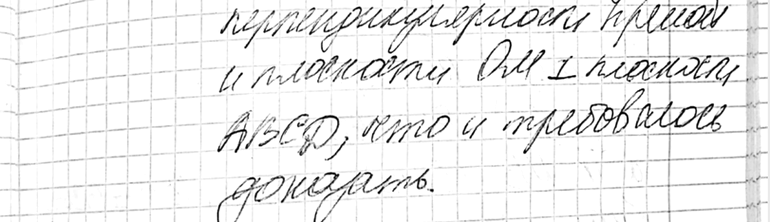 перпендикулярности прямой
и плоскости OM ⊥ плоскости
ABCD, что и требовалось
доказать.